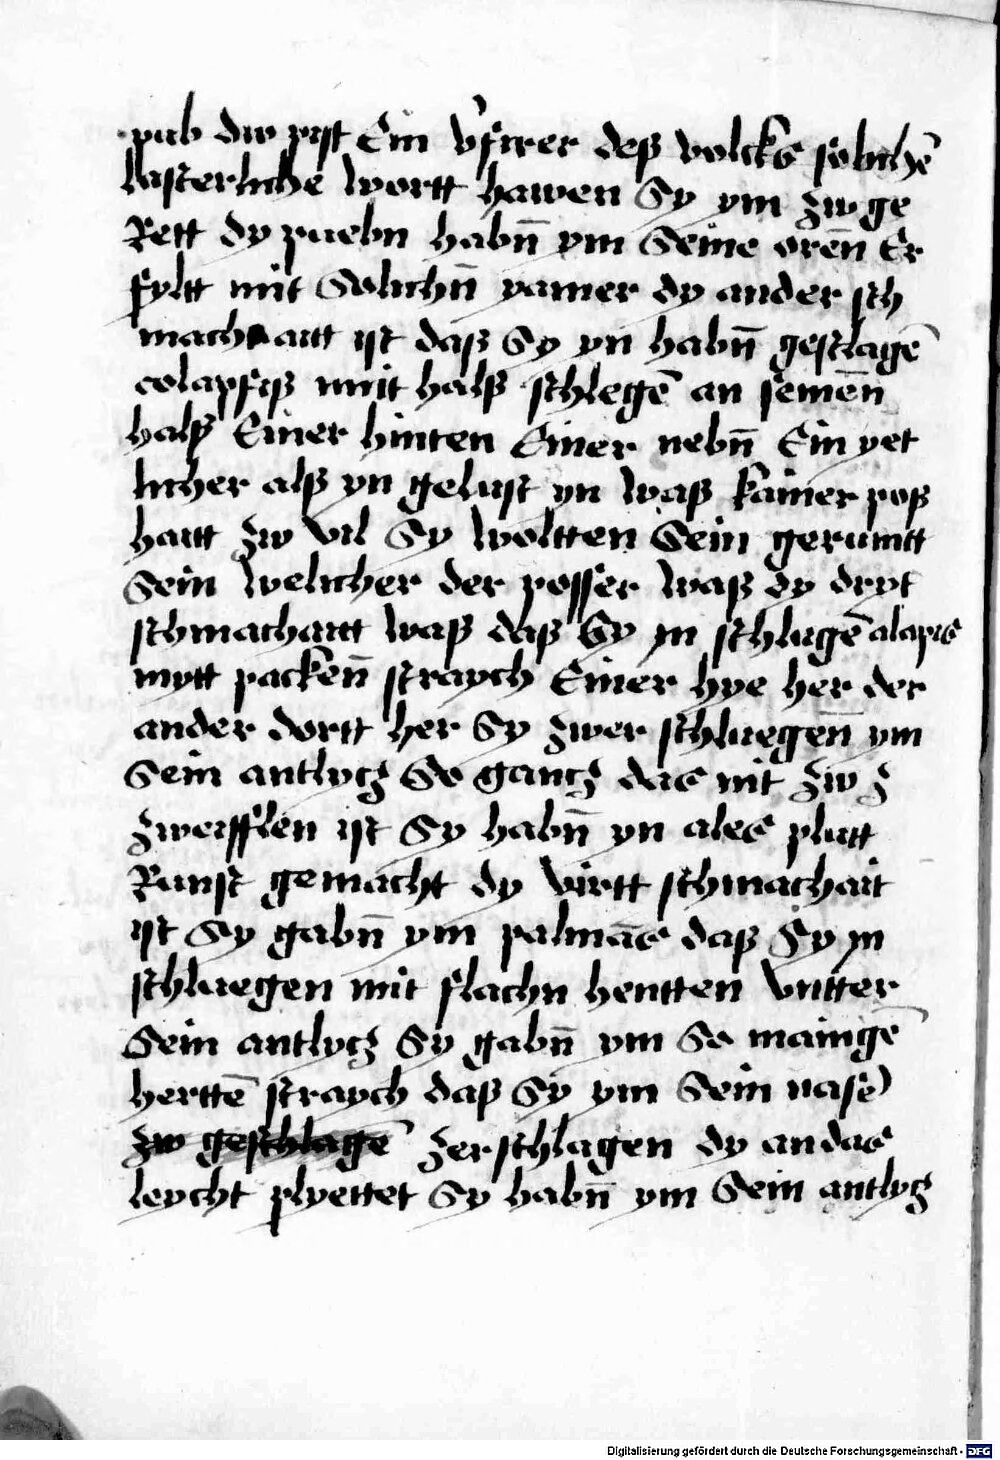 pub dw pist Ein Vfirer deß volcks solichē
lasterliche wortt hawen Sy ym zw ge
Rett dy puebn habn̄ ym Seine oren̄ Er
fyltt mit Solichn̄ yamer dy ander sch
machaitt ist daß Sy yn habn̄ geschlagē
colapfiß mit halß schlegē an seinen̄
halß Einer hinten Einer nebn̄ Ein yet
licher alß yn gelust yn waß kainer poß
hautt zw vil Sy woltten Sein gerumtt
Sein welicher der posser waß dy dryt
schmachaitt waß daß Sy yn schlugē alapis
mytt packen̄ straych Einer hye her der
ander dortt her Sy zwer schluegen̄ ym
Sein antlycz So gancz das nit zw z
zweifflen ist Sy habn̄ yn ales plutt
Runst gemacht dy virtt schmachait
ist Sy gabn̄ ym palmās daß Sy yn
schluegen mit flachn hentten vntter
Sein antlycz Sy gabn̄ ym So maingē
herttē straych daß Sy ym Sein nase
zw geschlagē zerschlagen dy andas
leycht plyettet Sy habn̄ ym Sein antlycz
Digitalisierung gefördert durch die Deutsche Forschungsgemeinschaft - DFG